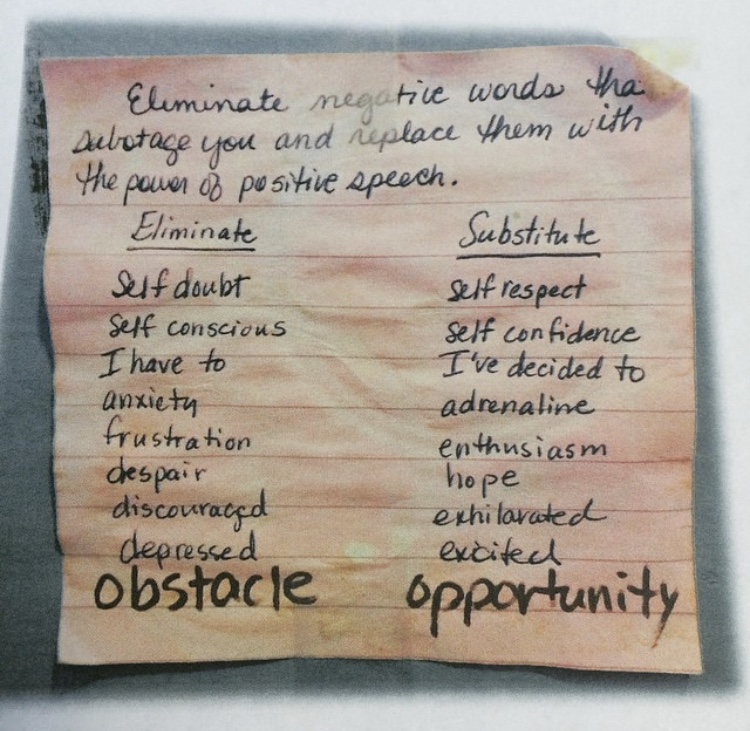 Eliminate negative words tha
sabotage you and replace them with
the power of positive speech.
Eliminate Substitute
Self doubt Self respect
Self conscious Self confidence
I have to I've decided to
anxiety adrenaline
frustration enthusiasm
despair hope
discouraged exhilarated
depressed excited
obstacle opportunity